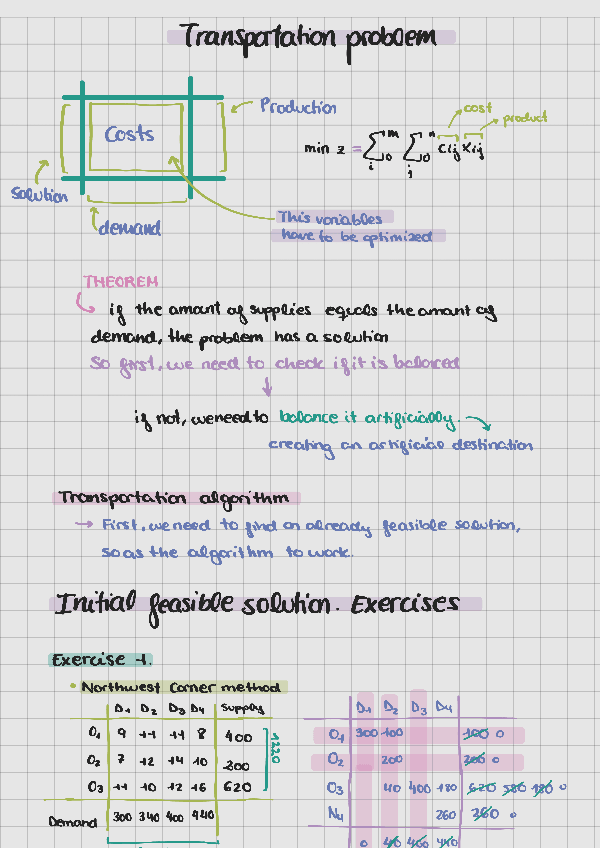 Transportation problem
Costs
Production
solution
demand
This variables
have to be optimized
min z = Σ Σ Cij Xij
cost
product
THEOREM
if the amant of supplies equals the amant of
demand, the problem has a solution
So first, we need to check if it is balanced
if not, we need to balance it artificially.
creating an artificial destination
Transportation algorithm
→ First, we need to find an already feasible solution,
so as the algorithm to work.
Initial feasible solution. Exercises
Exercise 1.
• Northwest Corner method
D1 D2 D3 D4 Supply
O1 9 11 11 8 400
O2 7 12 14 10 200
O3 11 10 12 16 620
1220
Demand 300 340 400 440
D1 D2 D3 D4
O1 300 100 400 0
O2 200 200 0
O3 40 400 180 620 580 180 0
N4 260 260 0
0 40 400 440